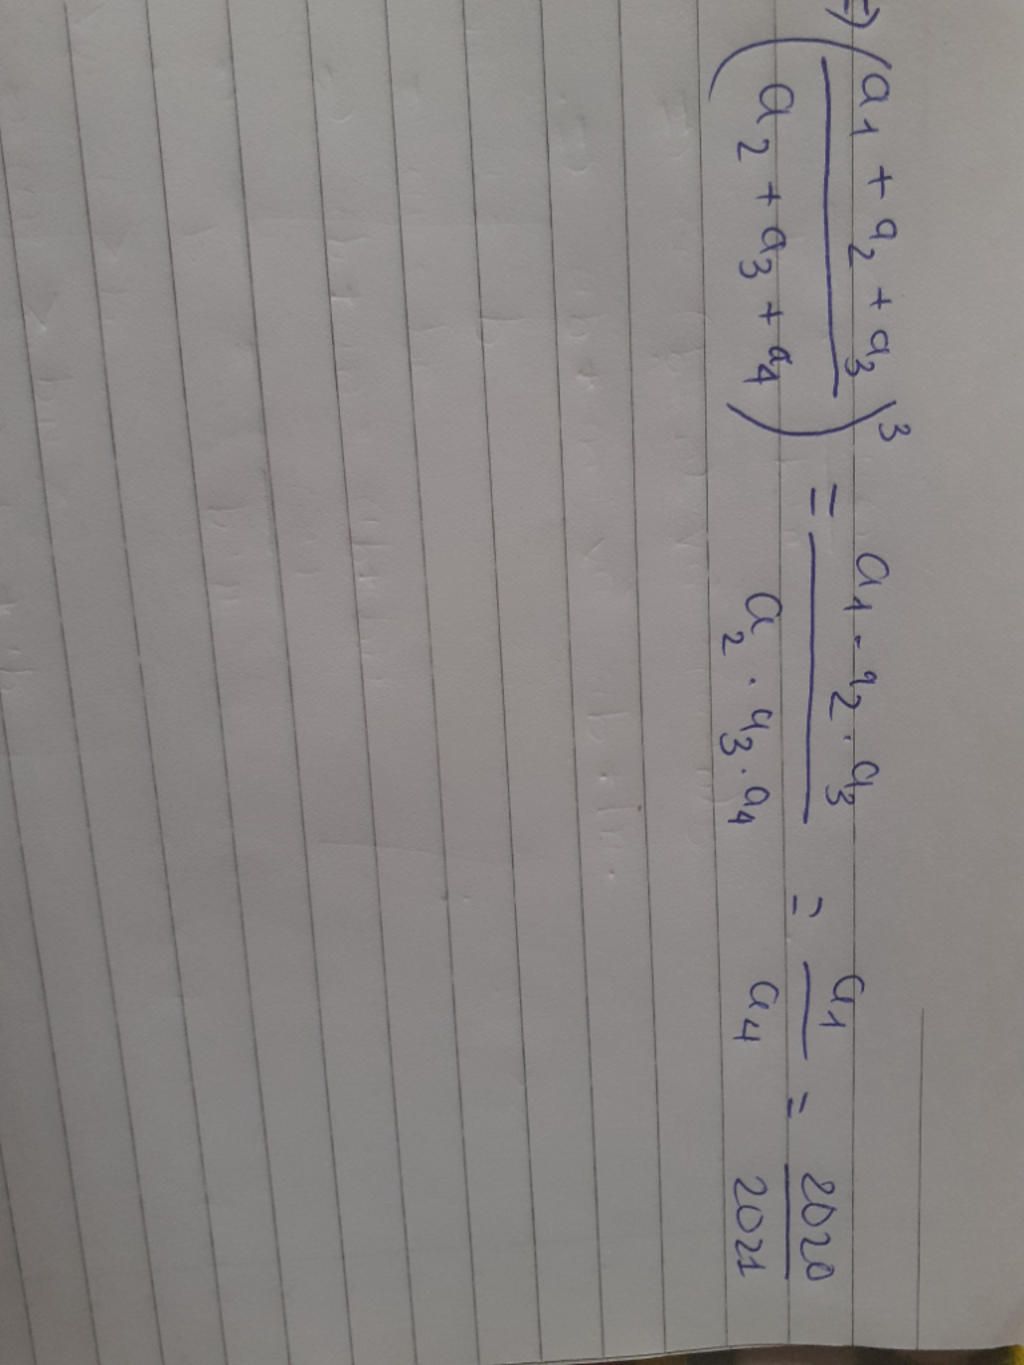 => ( (a₁ + a₂ + a₃) / (a₂ + a₃ + a₄) )³ = (a₁ . a₂ . a₃) / (a₂ . a₃ . a₄) = a₁ / a₄ = 2020 / 2021